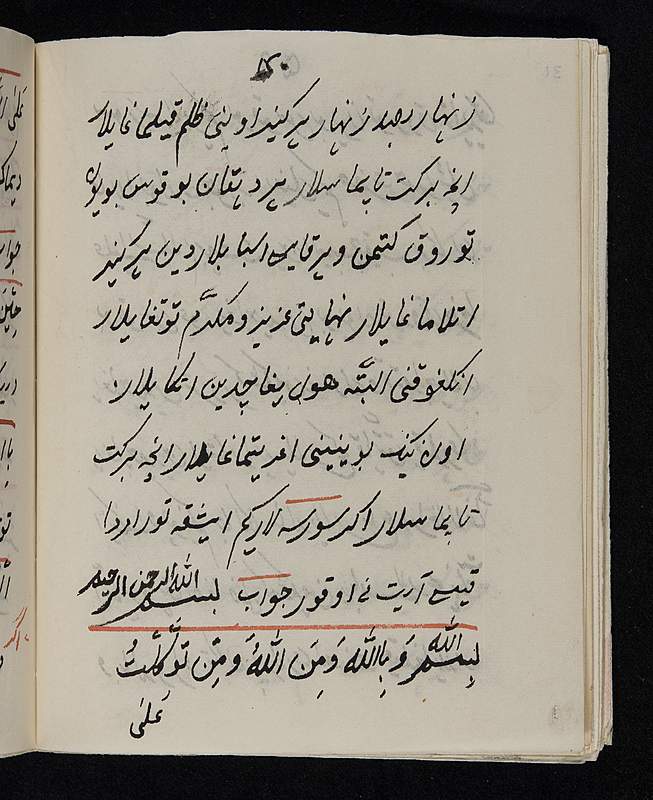 زنهار وصد زنهار هر کیند اوینی ظلم قیلماغایلار
انچه برکت تاپماسلار هر دهقان بوقوس بویولا
توروق کتمن و هر قایسی اسبابلاردین هر کیند
اتلاماغایلار نهایتی عزیز و مکدم توتغایلار
انکغوقنی البتّه هول یغاچدین اتکایلار
اون نینک بوینینی اغریتماغایلار انچه برکت
تاپماسلار اکر سورسه لار کیم ایشقه توراردا
قیسی آیت نی اوقور جواب بسم الله الرحمن الرحیم
بسم الله وَ بِاالله وَمِنَ اللهُ وَمِنّ تَوَّکَلْتُ
عَلَی